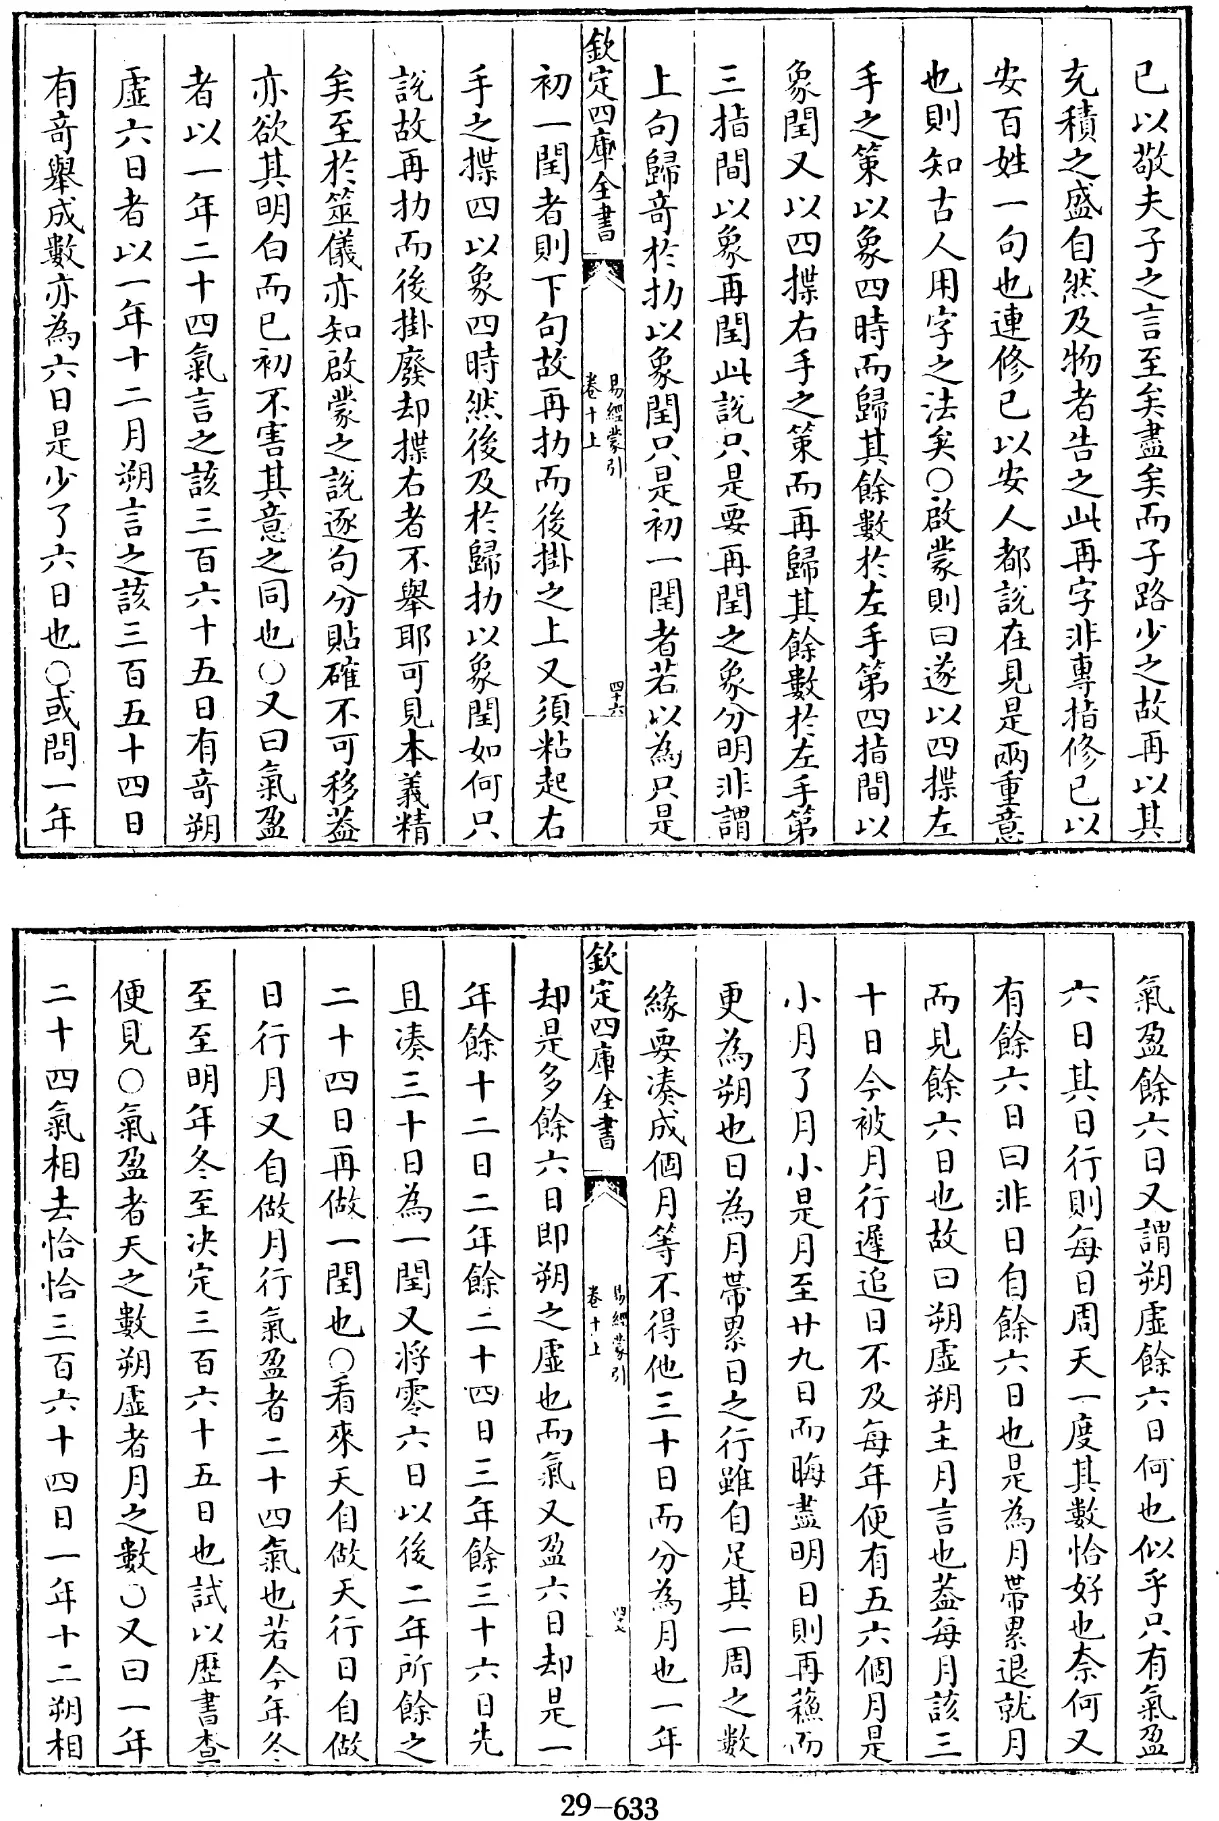 己以敬夫子之言至矣盡矣而子路少之故再以其
充積之盛自然及物者告之此再字非專指修己以
安百姓一句也連修己以安人都說在見是兩重意
也則知古人用字之法矣○啟蒙則曰遂以四揲左
手之策以象四時而歸其餘數於左手第四指間以
象閏又以四揲右手之策而再歸其餘數於左手第
三指間以象再閏此說只是要再閏之象分明非謂
上句歸奇於扐以象閏只是初一閏者若以為只是
欽定四庫全書
易經蒙引
卷十上
四十六
初一閏者則下句故再扐而後掛之上又須粘起右
手之揲四以象四時然後及於歸扐以象閏如何只
說故再扐而後掛廢却揲右者不舉耶可見本義精
矣至於筮儀亦知啟蒙之說逐句分貼確不可移葢
亦欲其明白而已初不害其意之同也○又曰氣盈
者以一年二十四氣言之該三百六十五日有奇朔
虛六日者以一年十二月朔言之該三百五十四日
有奇舉成數亦為六日是少了六日也○或問一年
氣盈餘六日又謂朔虛餘六日何也似乎只有氣盈
六日其日行則每日周天一度其數恰好也奈何又
有餘六日曰非日自餘六日也是為月帶累退就月
而見餘六日也故曰朔虛朔主月言也葢每月該三
十日今被月行遲追日不及每年便有五六個月是
小月了月小是月至廿九日而晦盡明日則再蘓而
更為朔也日為月帶累日之行雖自足其一周之數
緣要湊成個月等不得他三十日而分為月也一年
欽定四庫全書
易經蒙引
卷十上
四十七
却是多餘六日即朔之虛也而氣又盈六日却是一
年餘十二日二年餘二十四日三年餘三十六日先
且湊三十日為一閏又將零六日以後二年所餘之
二十四日再做一閏也○看來天自做天行日自做
日行月又自做月行氣盈者二十四氣也若今年冬
至至明年冬至决定三百六十五日也試以歷書查
便見○氣盈者天之數朔虛者月之數○又曰一年
二十四氣相去恰恰三百六十四日一年十二朔相
29-633